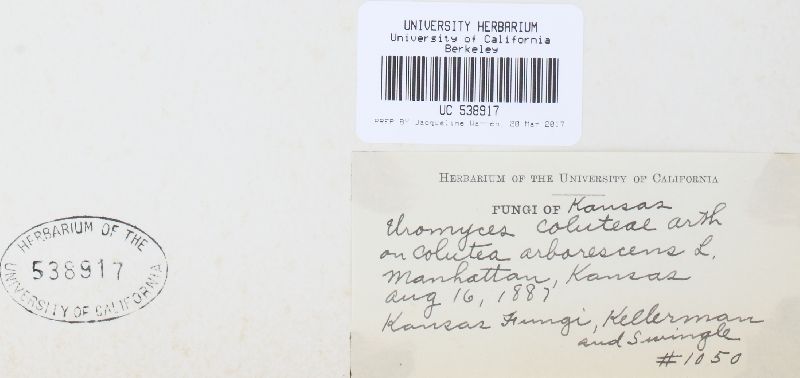 UNIVERSITY HERBARIUM
University of California
Berkeley
UC 538917
PREP BY Jacqueline Warren, 20 Mar 2017
HERBARIUM OF THE UNIVERSITY OF CALIFORNIA
FUNGI OF Kansas
Uromyces coluteae arth
on Colutea arborescens L.
Manhattan, Kansas
Aug 16, 1887
Kansas Fungi, Kellerman
and Swingle
#1050
HERBARIUM OF THE
538917
UNIVERSITY OF CALIFORNIA